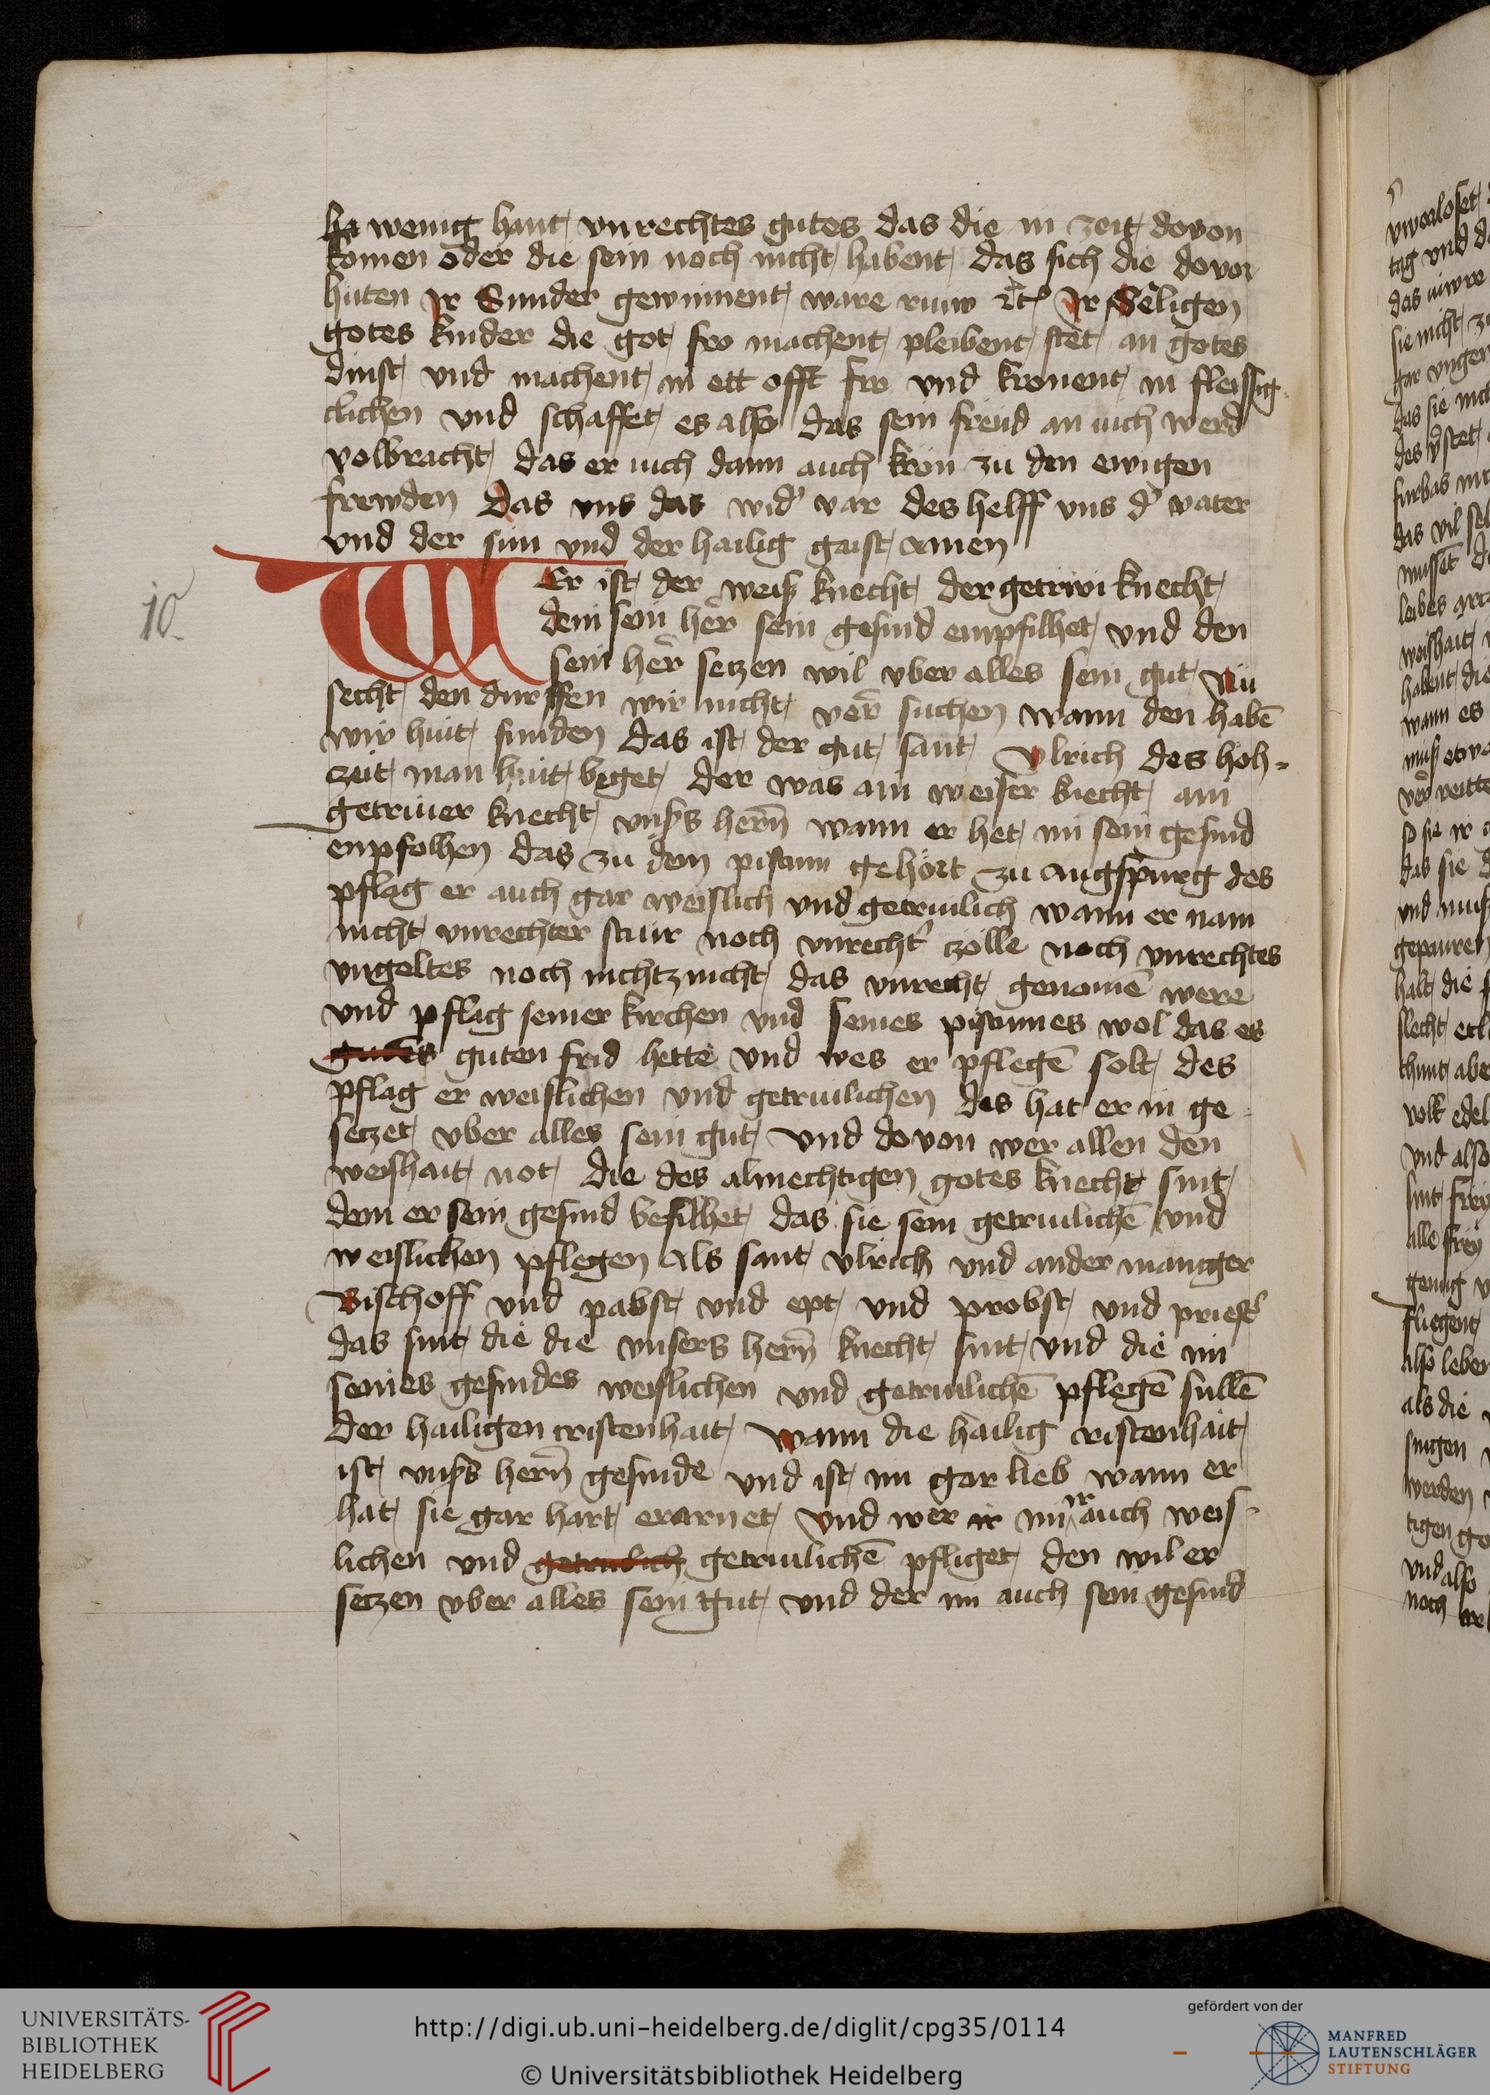 wenig hant vnrechtes gutes das die in zeit dovon
komen oder die sein noch nicht habent das sich die dovor
hüten Ir Sunder gewinnent ware ruiw etc Ir Seligen
gotes kinder die got fro machent pleibent stet an gotes
dinst vnd machent in ett offt fro vnd kronent in fleissig
clichen vnd schaffet es also das sein freud an iuch werd
volbracht das er iuch dann auch kron zu den ewigen
frewden das vns das wid' var des helff vns d' vater
vnd der sun vnd der hailig gaist amen
WEr ist der weiß knecht der getriwi knecht
dem sein her sein gesind empfilhet vnd den
sein her setzen wil vber alles sein gut Nu
secht den durffen wir nicht ver suchen wann den habē
wir huit funden das ist der gut sant Vlrich des hoh=
zeit man huit beget der was ain weiser knecht ain
getriuer knecht vnsers hern̄ wann er het im sein gesind
enpfolhen das zu dem pistum gehört zu augspurg des
pflag er auch gar weislich vnd getriulich wann er nam
nicht vnrechter stiur noch vnrecht' zölle noch vnrechtes
vngeltes noch nichtznicht das vnrecht genomē were
vnd pflag seiner kirchen vnd seines pistumes wol das es
guten frid hette vnd wes er pflegē solt des
pflag er weislichen vnd getriulichen des hat er in ge
setzet vber alles sein gut vnd dovon wer allen den
weishait not die des almechtigen gotes knecht sint
dem er sein gesind befilhet das sie sein getriulichē vnd
weislichen pflegen als sant vlrich vnd ander maniger
Bischoff vnd pabst vnd ept vnd probst vnd priest'
das sint die die vnsers hern̄ knecht sint vnd die im
seines gesindes weislichen vnd getriulichē pflegē sullē
der hailigen cristenhait wann die hailig cristenhait
ist vnsers hern̄ gesinde vnd ist im gar lieb wann er
hat sie gar hart erarnet vnd wer ir im ir auch weis
lichen vnd getriulich getriulichē pfliget den wil er
setzen vber alles sein gut vnd der im auch sein gesind
10
UNIVERSITÄTS-
BIBLIOTHEK
HEIDELBERG
http://digi.ub.uni-heidelberg.de/diglit/cpg35/0114
© Universitätsbibliothek Heidelberg
gefördert von der
MANFRED
LAUTENSCHLÄGER
STIFTUNG